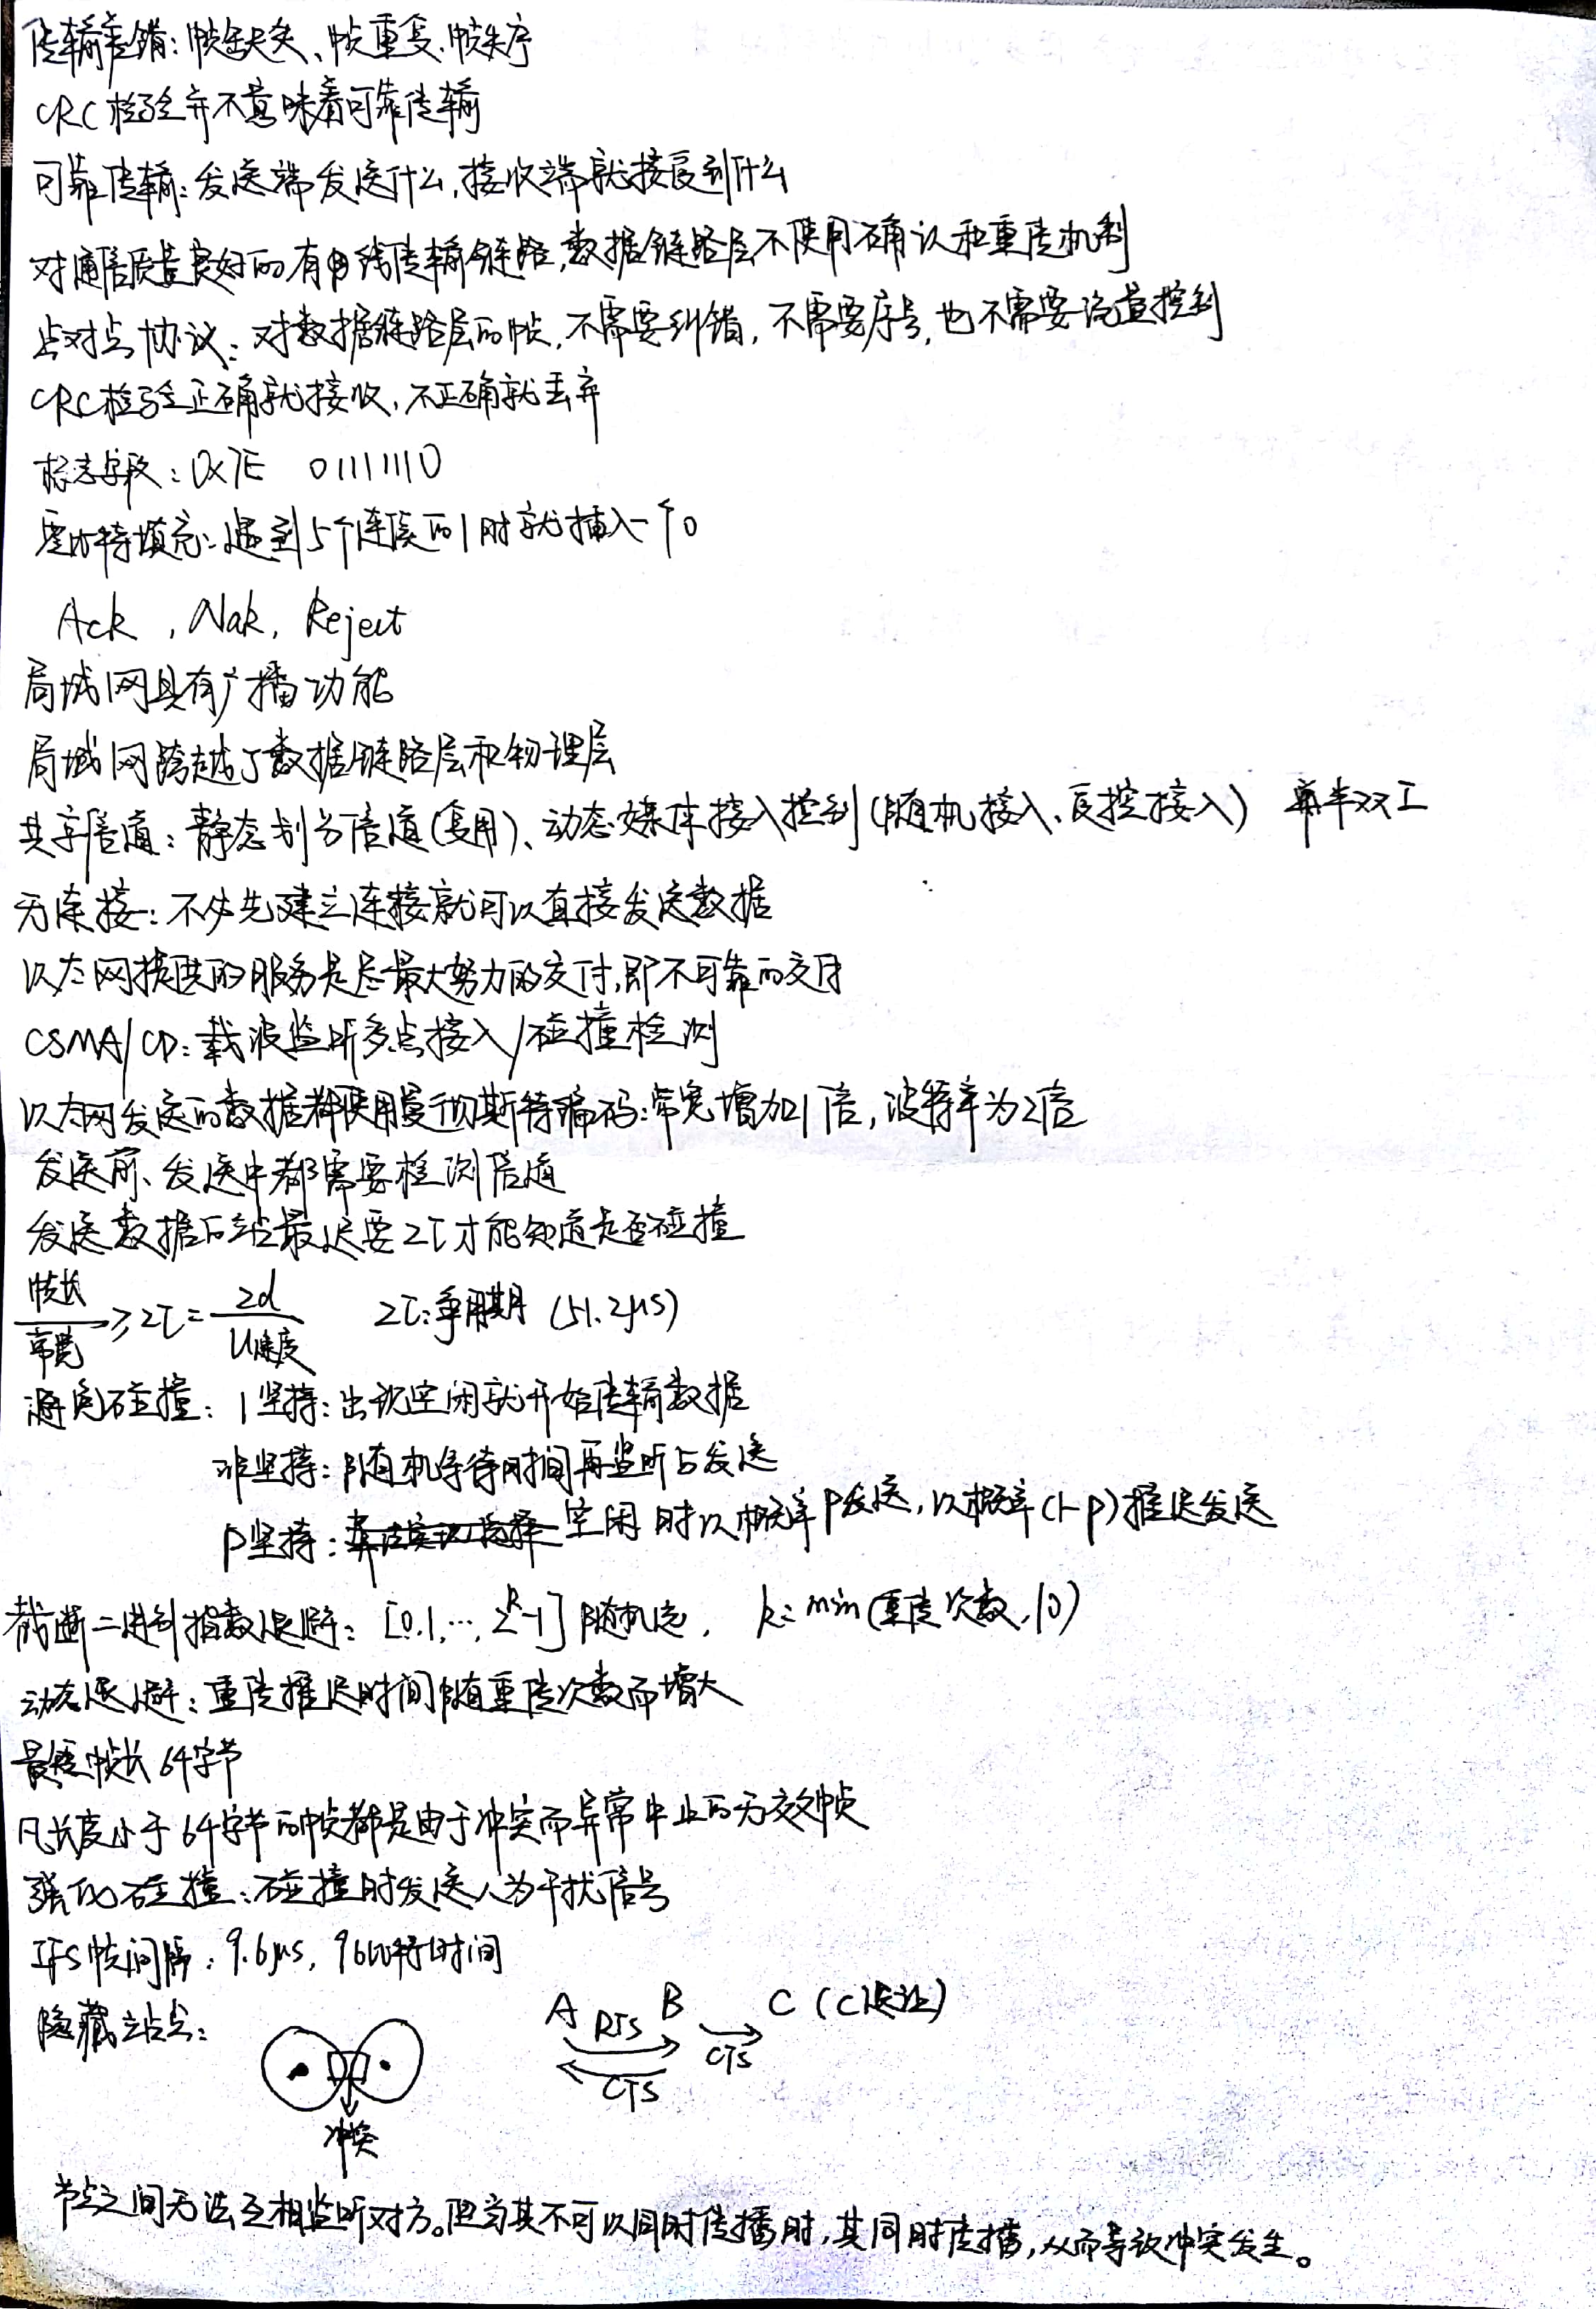 传输差错：帧丢失、帧重复、帧失序
CRC检验并不意味着可靠传输
可靠传输：发送端发送什么，接收端就接收到什么
对通信质量良好的有线传输链路，数据链路层不使用确认和重传机制
点对点协议：对数据链路层的帧，不需要纠错，不需要序号，也不需要流量控制
CRC检验正确就接收，不正确就丢弃
标志字段：0x7E 01111110
零比特填充：遇到5个连续的1时就插入一个0
Ack，Nak，Reject
局域网具有广播功能
局域网跨越了数据链路层和物理层
共享信道：静态划分信道(复用)、动态媒体接入控制(随机接入、受控接入) 半双工
无连接：不必先建立连接就可以直接发送数据
以太网提供的服务是尽最大努力的交付，即不可靠的交付
CSMA/CD：载波监听多点接入/碰撞检测
以太网发送的数据都使用曼彻斯特编码：带宽增加1倍，波特率为2倍
发送前、发送中都需要检测信道
发送数据后站最迟要2τ才能知道是否碰撞
帧长/带宽 ≥ 2τ = 2d/u速度 2τ：争用期 (51.2μs)
避免碰撞：1坚持：出现空闲就开始传输数据
非坚持：随机等待时间再监听与发送
p坚持：空闲时以概率p发送，以概率(1-p)推迟发送
截断二进制指数退避：[0,1,…,2^k-1]随机选， k=min(重传次数,10)
动态退避：重传推迟时间随重传次数而增大
最短帧长64字节
凡长度小于64字节的帧都是由于冲突而异常中止的无效帧
强化碰撞：碰撞时发送人为干扰信号
IFS帧间隔：9.6μs，96比特时间
隐藏站点：
A RTS B C (C退让)
CTS CTS
冲突
节点之间无法互相监听对方。但当其不可以同时传播时，其同时传播，从而导致冲突发生。